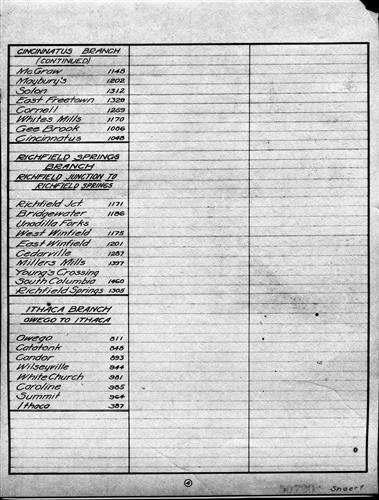 CINCINNATUS BRANCH
(CONTINUED)
McGraw 1148
Maybury's 1202
Solon 1312
East Freetown 1329
Cornell 1259
Whites Mills 1170
Gee Brook 1086
Cincinnatus 1048
RICHFIELD SPRINGS
BRANCH
RICHFIELD JUNCTION TO
RICHFIELD SPRINGS
Richfield Jct. 1171
Bridgewater 1186
Unadilla Forks
West Winfield 1175
East Winfield 1201
Cedarville 1287
Millers Mills 1397
Young's Crossing
South Columbia 1460
Richfield Springs 1305
ITHACA BRANCH
OWEGO TO ITHACA
Owego 811
Catatonk 848
Candor 893
Wilseyville 944
White Church 981
Caroline 985
Summit 964
Ithaca 387
4